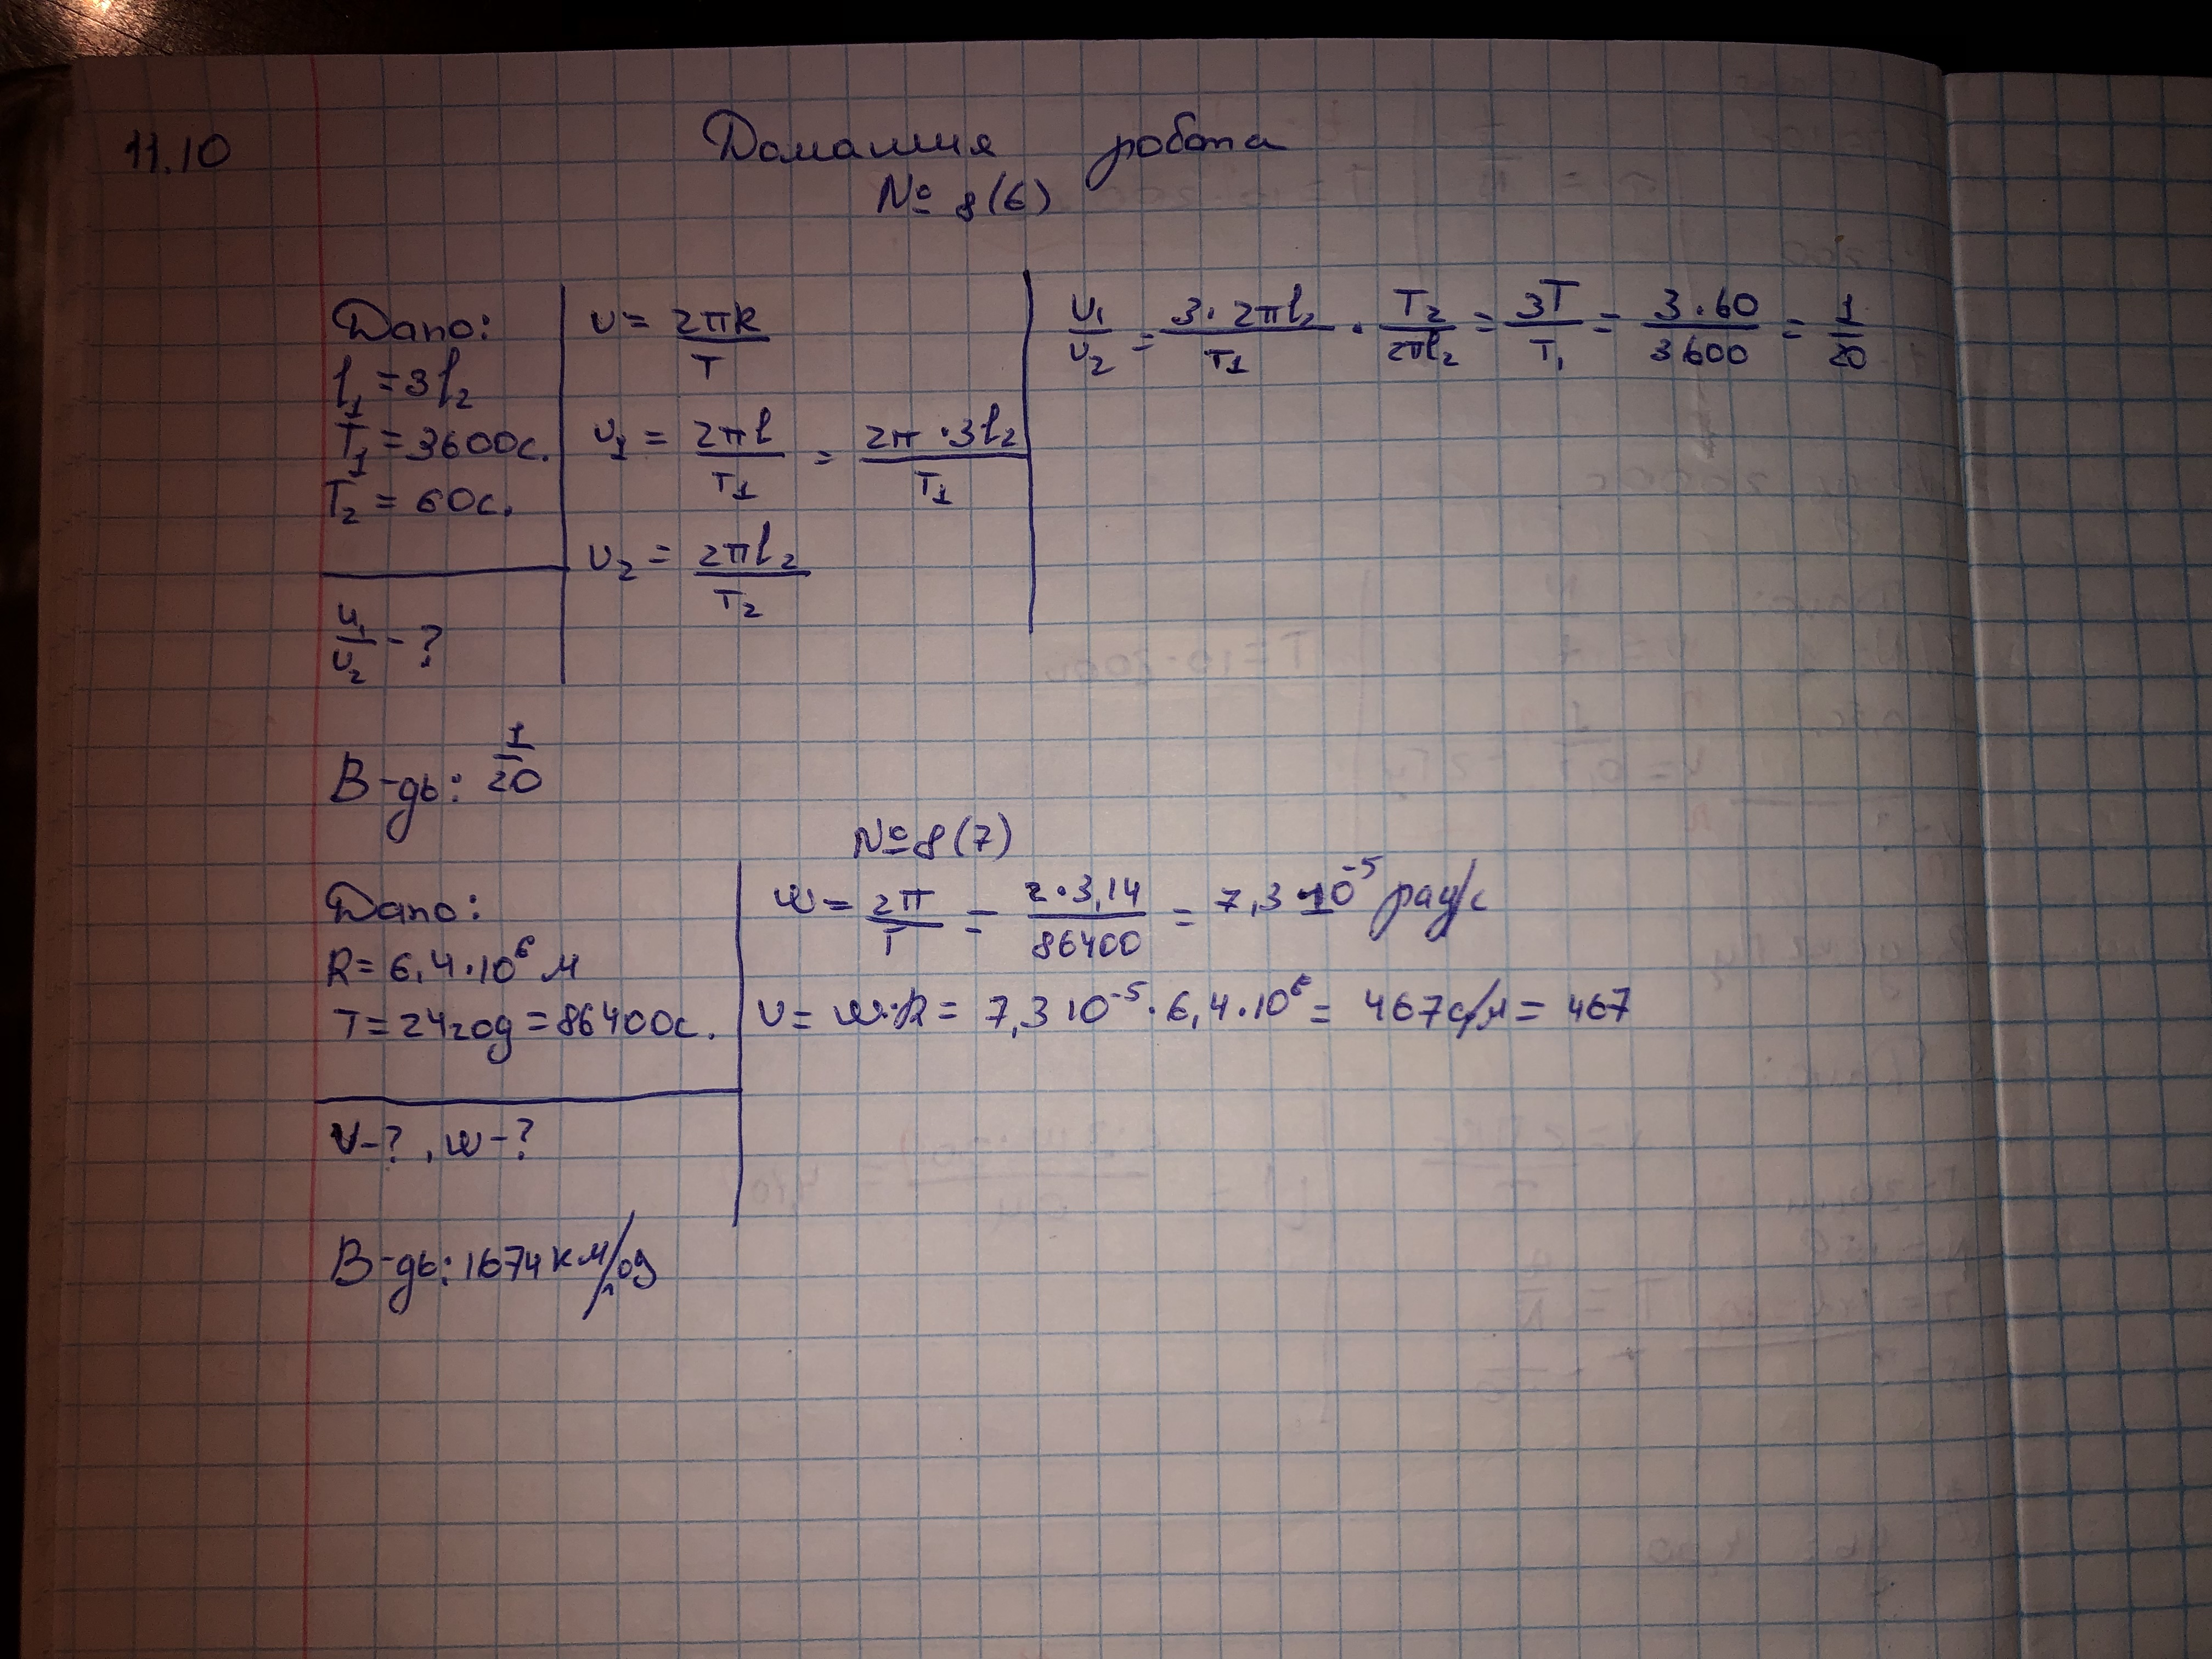 11.10
Домашня робота
№ 8(6)
Дано:
l₁ = 3l₂
T₁ = 3600с.
T₂ = 60с.
υ₁/υ₂ - ?
υ = 2πR/T
υ₁ = 2πl/T₁ = 2π·3l₂/T₁
υ₂ = 2πl₂/T₂
υ₁/υ₂ = 3·2πl₂/T₁ · T₂/2πl₂ = 3T/T₁ = 3·60/3600 = 1/20
В-дь: 1/20
№ 8(7)
Дано:
R = 6,4·10⁶ м
T = 24год = 86400с.
V-? , ω-?
ω = 2π/T = 2·3,14/86400 = 7,3·10⁻⁵ рад/с
υ = ω·R = 7,3 10⁻⁵·6,4·10⁶ = 467с/м = 467
В-дь: 1674 км/год